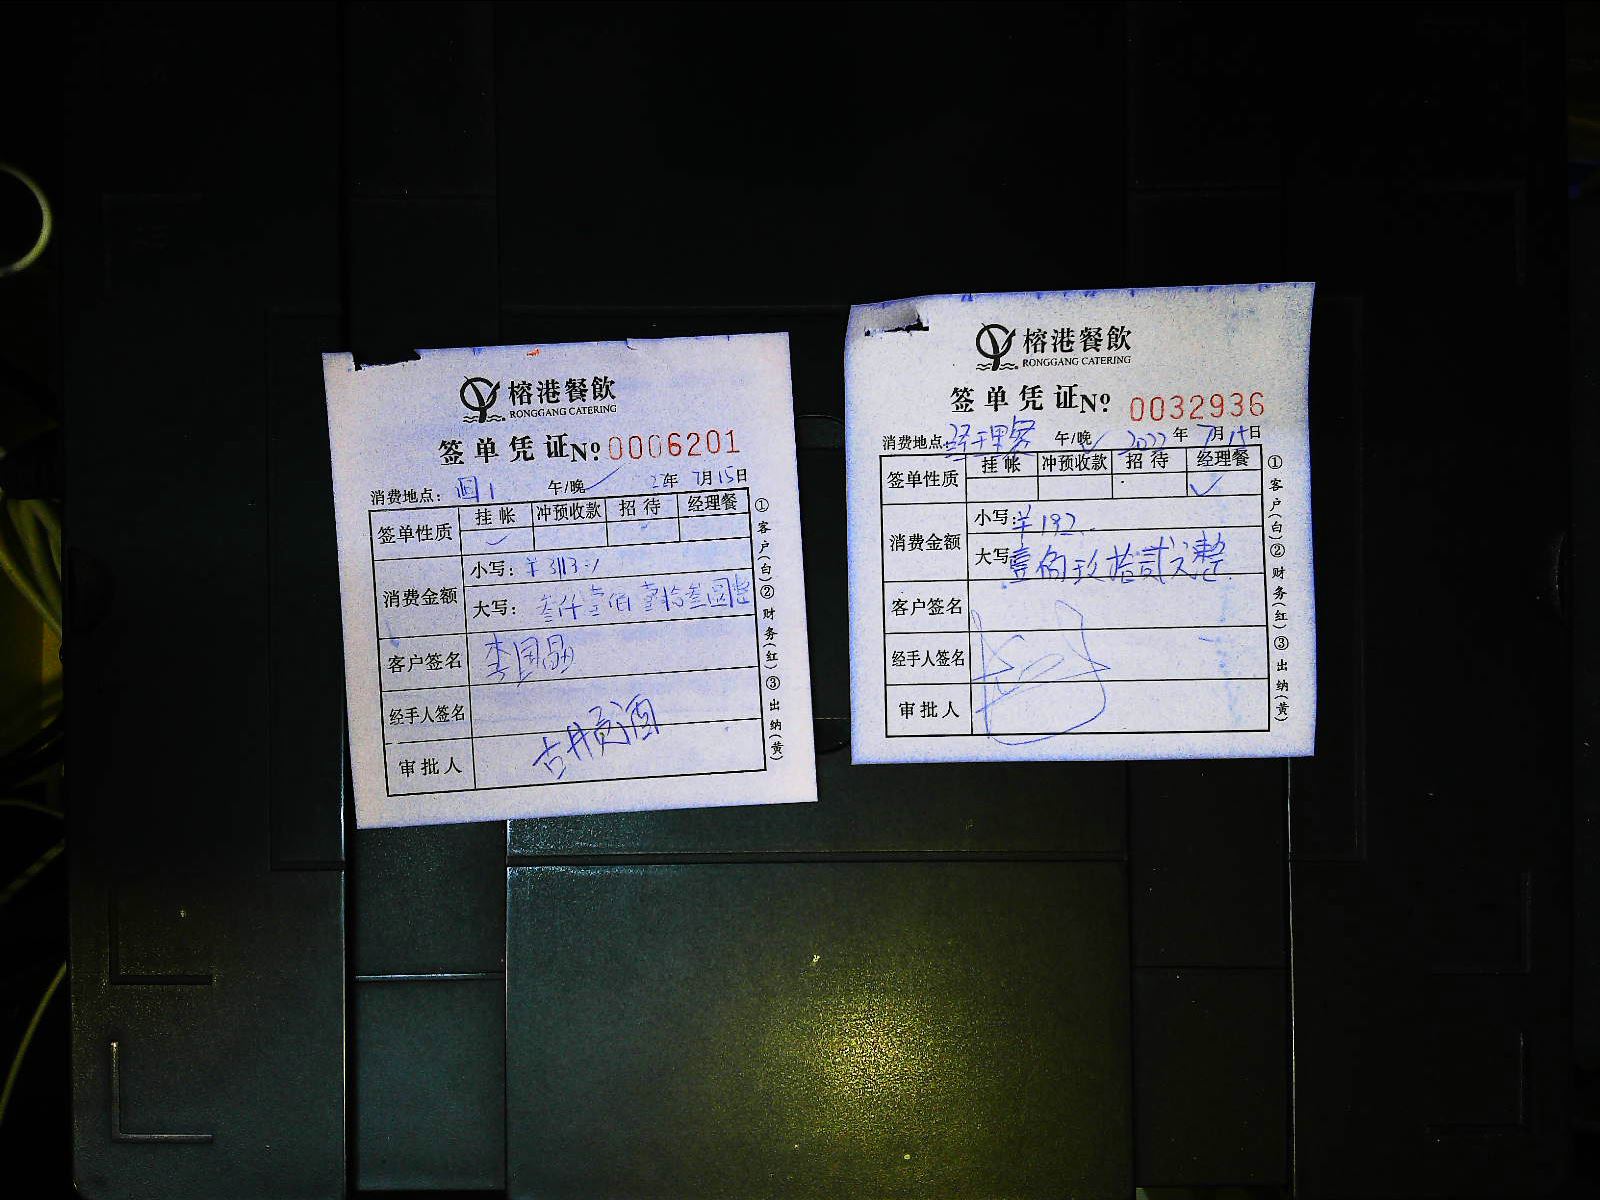 榕港餐飲
RONGGANG CATERING
签单凭证 Nº 0006201
消费地点: 国1 午/晚 22年 7月15日
签单性质 挂帐 冲预收款 招待 经理餐
消费金额
小写: ¥3113
大写: 叁仟壹佰壹拾叁圆整
客户签名 李国
经手人签名
审批人 古井贡酒
①客户(白)②财务(红)③出纳(黄)
榕港餐飲
RONGGANG CATERING
签单凭证 Nº 0032936
消费地点: 经理餐 午/晚 2022年 7月15日
签单性质 挂帐 冲预收款 招待 经理餐
消费金额
小写: ¥192.
大写: 壹佰玖拾贰元整
客户签名
经手人签名
审批人
①客户(白)②财务(红)③出纳(黄)